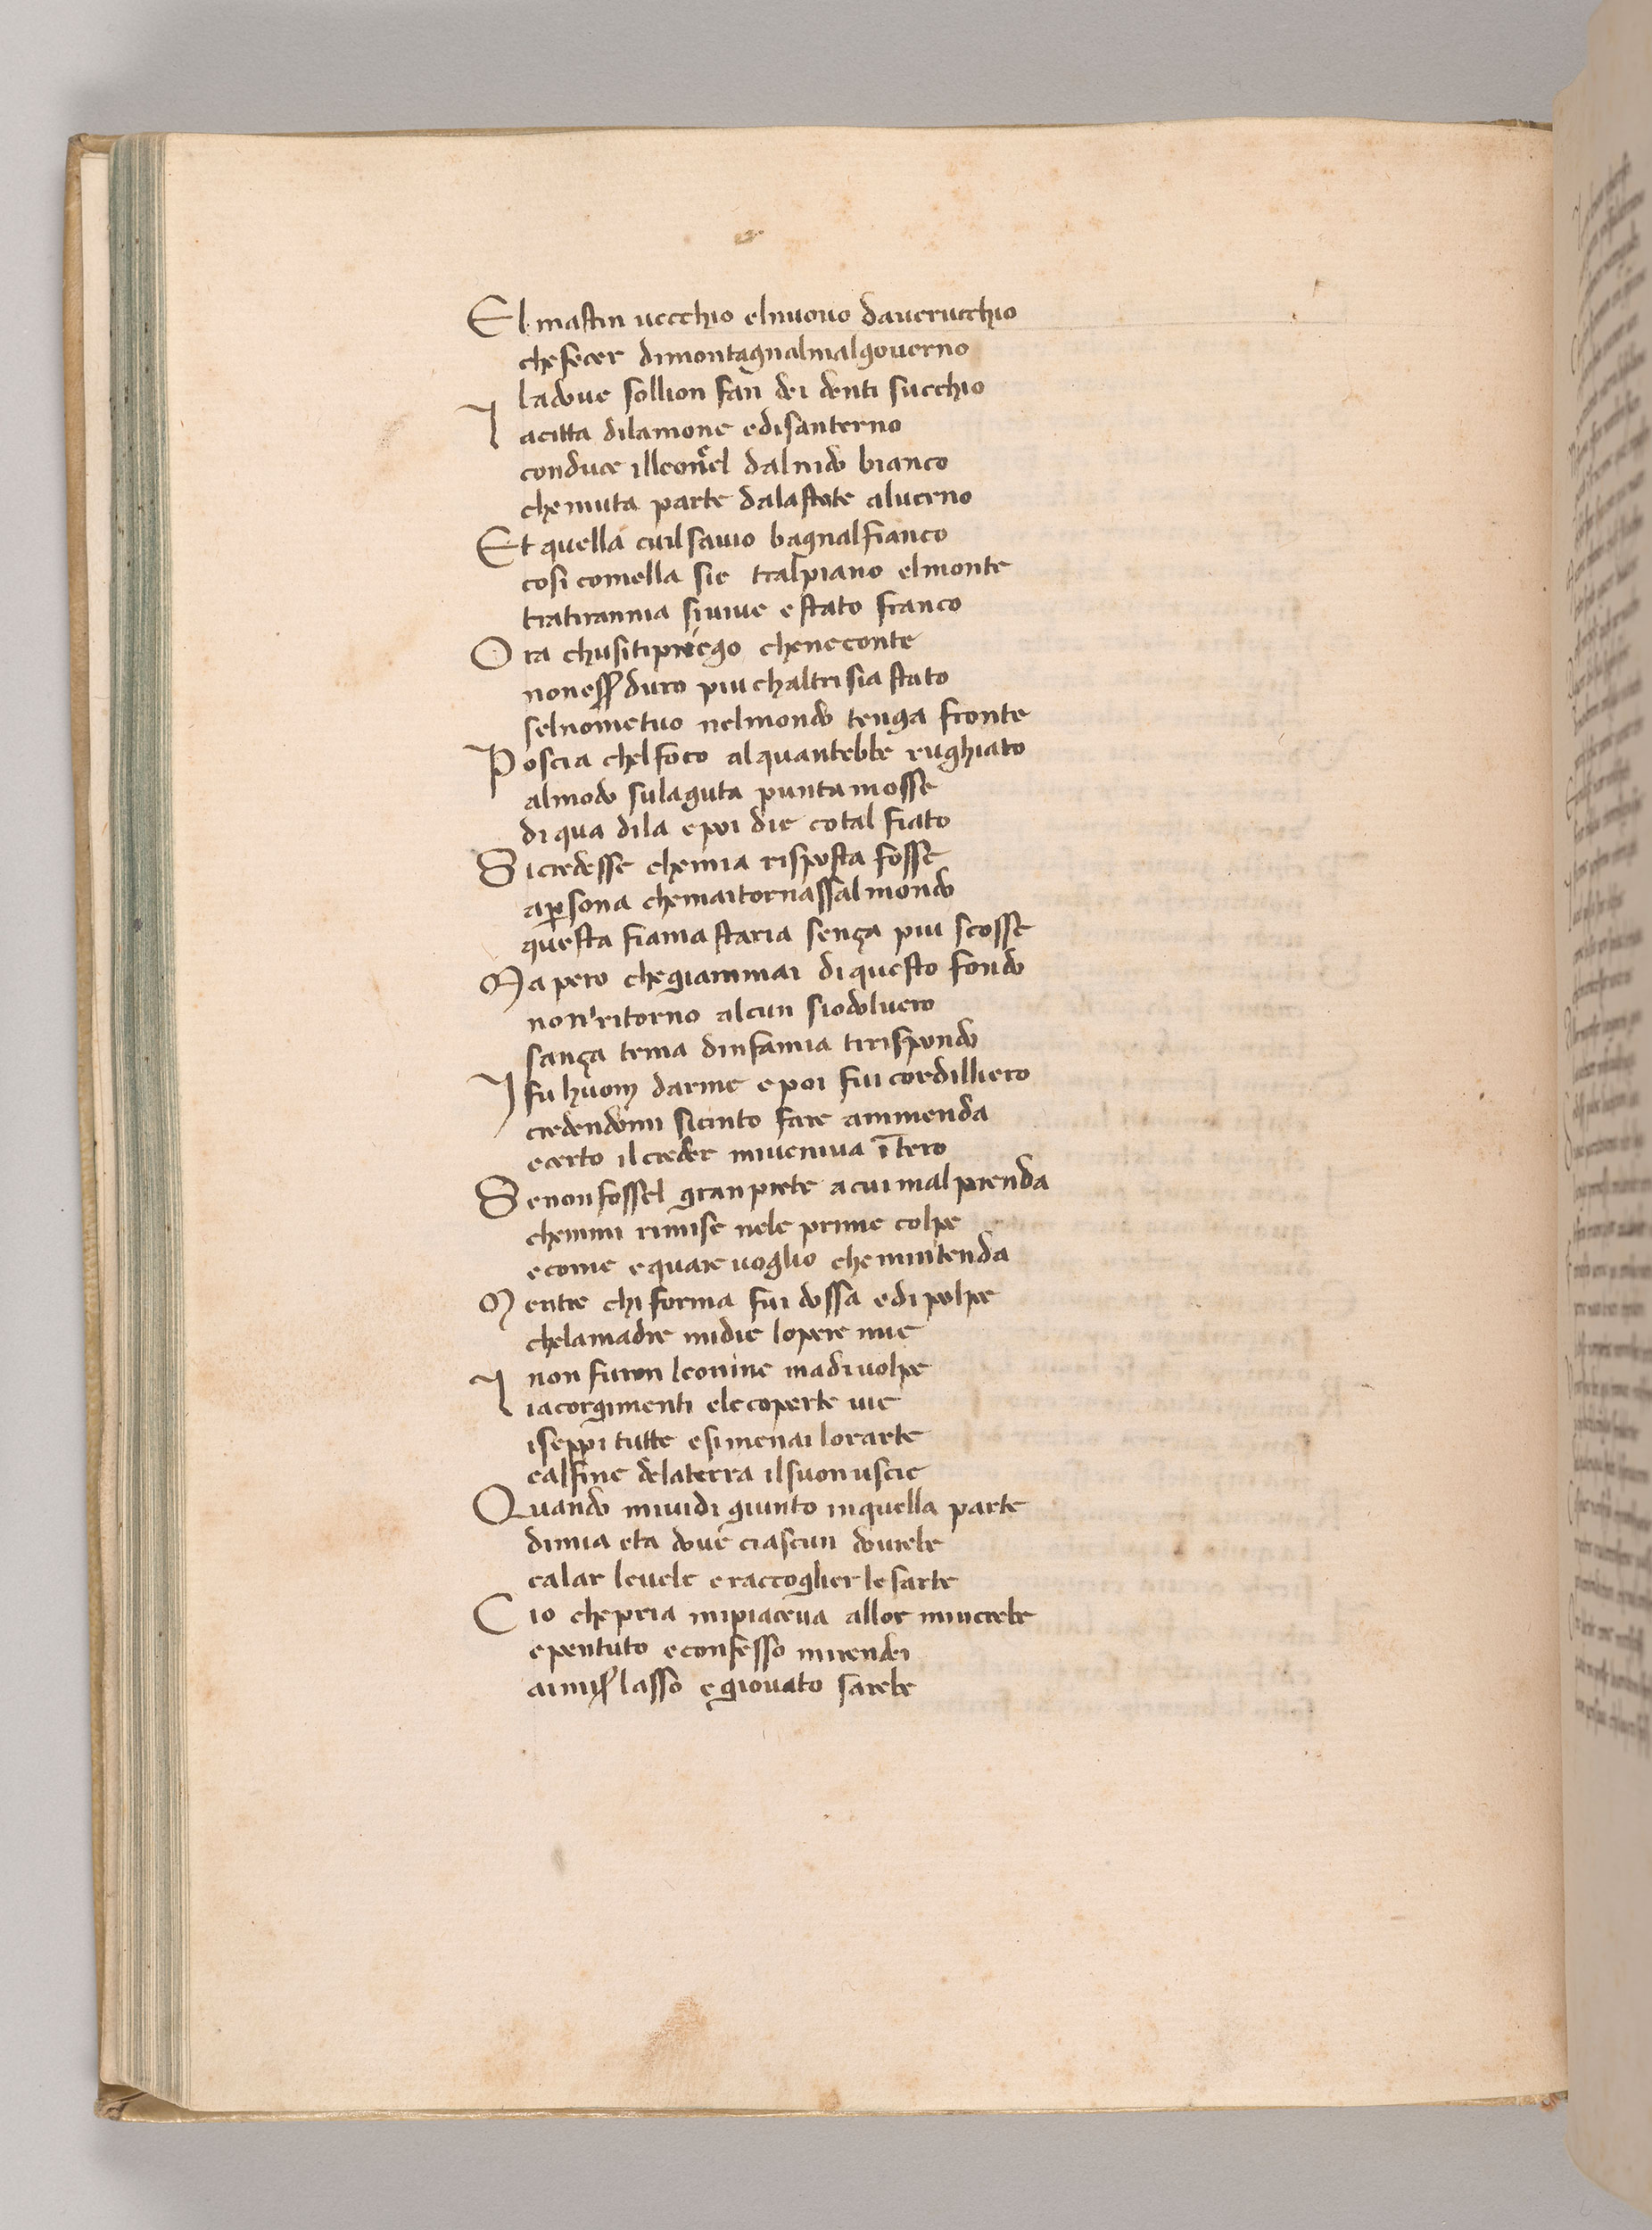 El mastin vecchio elnuovo daverucchio
chefecer dimontagnalmalgoverno
ladove sollion fan dei denti succhio
I acitta dilamone edisanterno
conduce illeoncel dalnido bianco
chemuta parte dalastate aluerno
Et quella cuilsavio bagnalfianco
cosi comella sie tralpiano elmonte
tratirannia sivive estato franco
Ora chisitipriego cheneconte
nonesser duro piu chaltri sia stato
selnometuo nelmondo tenga fronte
Poscia chelfoco alquantebbe rughiato
almodo sulaguta punta mosse
di qua dila epoi die cotal fiato
Sicredesse chemia risposta fosse
apersona chemaitornassalmondo
questa fiama staria sença piu scosse
Ma pero chegiammai diquesto fondo
non ritorno alcun siodolvero
sança tema dinfamia tirispondo
I fu huom darme epoi fui cordilliero
credendomi sicinto fare ammenda
ecerto ilcreder miveniva ītero
Senonfossel granprete acuimalprenda
chemmi rimise nele prime colpe
ecome equare voglio chemmintenda
Mentre chi forma fui dossa edipolpe
chelamadre midie lopere mie
non furon leonine madivolpe
I iacorgimenti elecoperte vie
iseppi tutte esimenai lorarte
calfine delaterra ilsuonuscie
Quando mividi giunto inquella parte
dimia eta dove ciascun dovrebe
calar levele eraccoglier lesarte
Cio chepria mipiaceva allor mincrebe
epentuto econfesso mirendei
aimiser lasso egiovato sarebe